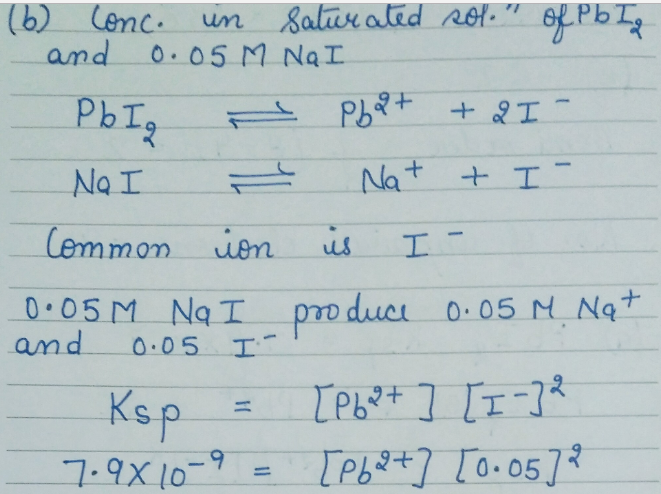 (b) Conc. in saturated sol.ⁿ of PbI₂
and 0.05 M NaI
PbI₂ ⇌ Pb²⁺ + 2I⁻
NaI ⇌ Na⁺ + I⁻
Common ion is I⁻
0.05M NaI produce 0.05 M Na⁺
and 0.05 I⁻
Ksp = [Pb²⁺] [I⁻]²
7.9×10⁻⁹ = [Pb²⁺] [0.05]²